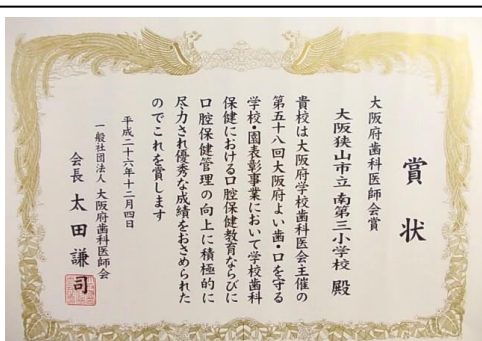 賞状
大阪府歯科医師会賞
大阪狭山市立 南第三小学校 殿
貴校は大阪府学校歯科医会主催の
第五十八回大阪府よい歯・口を守る
学校・園表彰事業において学校歯科
保健における口腔保健教育ならびに
口腔保健管理の向上に積極的に
尽力され優秀な成績をおさめられた
のでこれを賞します
平成二十六年十二月四日
一般社団法人 大阪府歯科医師会
会長 太田謙司